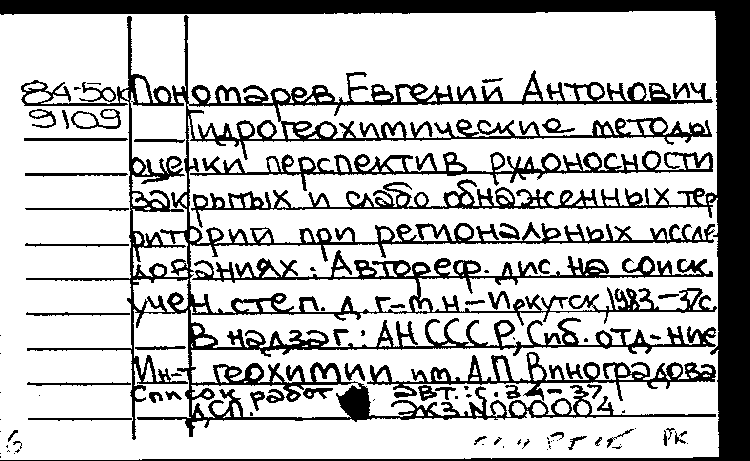 84-5ок Пономарев, Евгений Антонович
9109 Гидрогеохимические методы
оценки перспектив рудоносности
закрытых и слабо обнаженных тер
риторий при региональных иссле
дованиях: Автореф. дис. на соиск.
учен. степ. д. г.-м.н.-Иркутск, 1983.-37с.
В надзаг.: АН СССР, Сиб. отд-ние,
Ин-т геохимии им. А.П. Виноградова
Список работ авт.: с. 34-37.
ДСП. ЭКЗ. N000004.
6 РК